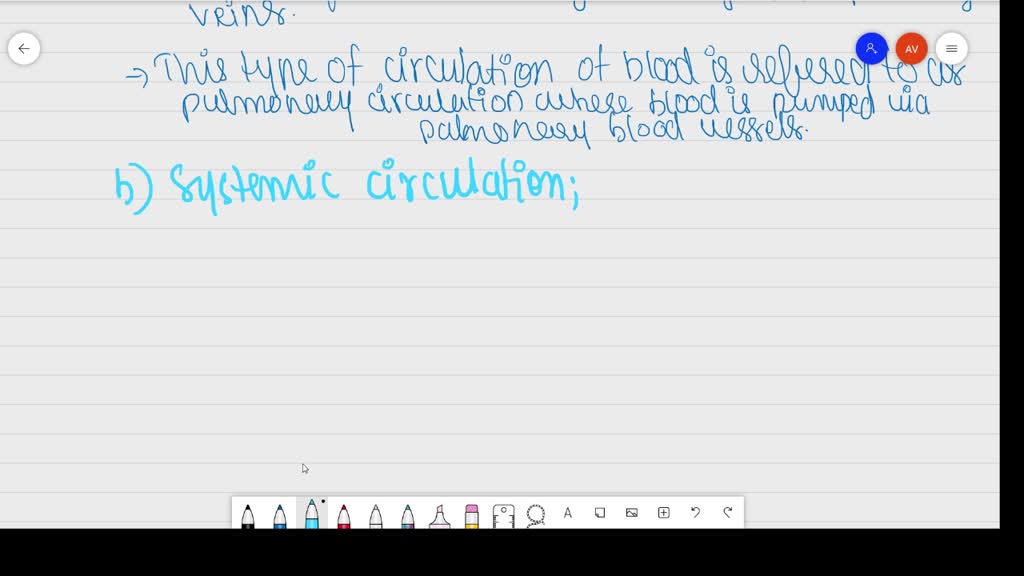 veins.
→ This type of circulation of blood is refered to as
AV
pulmonary circulation where blood is pumped via
pulmonary blood vessels.
b) Systemic circulation;
A